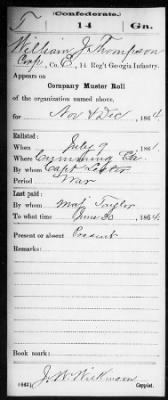 (Confederate.)
T 14 Gn.
William J Thompson
Cap, Co. E, 14 Reg't Georgia Infantry.
Appears on
Company Muster Roll
of the organization named above,
for Nov & Dec, 1864.
Enlisted:
When July 9, 1861.
Where Cumming Ga.
By whom Capt Lester
Period War
Last paid:
By whom Maj Taylor
To what time June 30, 1864.
Present or absent Present
Remarks:
Book mark:
J. W.
(642) Copyist.